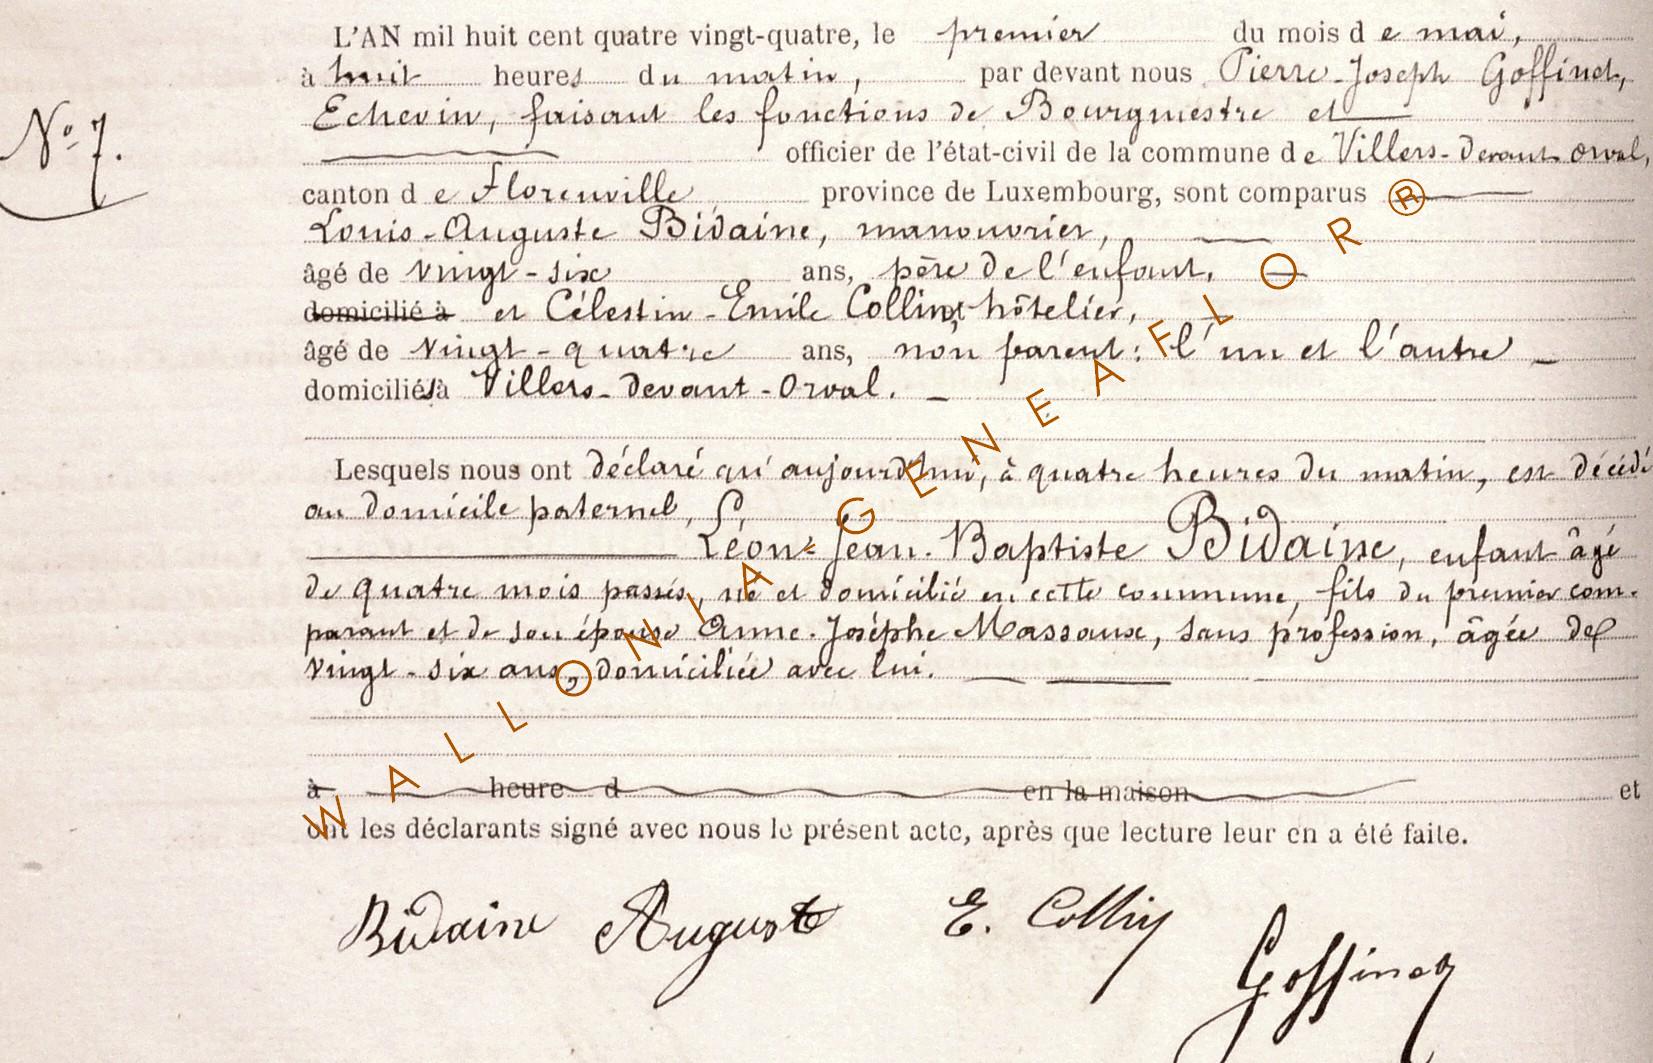 L'AN mil huit cent quatre vingt-quatre, le premier du mois de mai,
à huit heures du matin, par devant nous Pierre-Joseph Goffinet,
Echevin, faisant les fonctions de Bourgmestre et
N° 7.
officier de l'état-civil de la commune de Villers-devant-orval,
canton de Florenville province de Luxembourg, sont comparus ®
Louis-Auguste Bidaine, manouvrier,
âgé de vingt-six ans, père de l'enfant,
domicilié à et Célestin-Emile Collin, hôtelier,
âgé de vingt-quatre ans, non parent: l'un et l'autre
domiciliés à Villers-devant-Orval.
Lesquels nous ont déclaré qu'aujourd'hui, à quatre heures du matin, est décédé
au domicile paternel,
Léon-Jean-Baptiste Bidaine, enfant âgé
de quatre mois passés, né et domicilié en cette commune, fils du premier com-
parant et de son épouse Anne-Josèphe Massaux, sans profession, âgée de
vingt-six ans, domiciliée avec lui.
à heure d en la maison et
ont les déclarants signé avec nous le présent acte, après que lecture leur en a été faite.
Bidaine Auguste E. Collin
Goffinet
WALLONIA GENEAFLOR ®